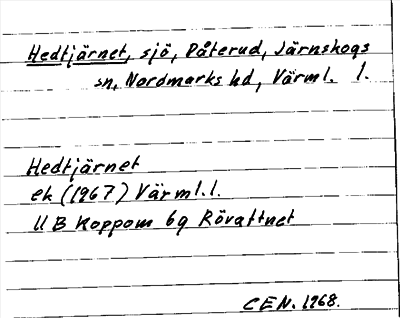 Hedtjärnet, sjö, Påterud, Järnskogs
sn, Nordmarks hd, Värml. l.
Hedtjärnet
ek (1967) Värml. l.
11 B Koppom 6g Rövattnet
CEN. 1968.